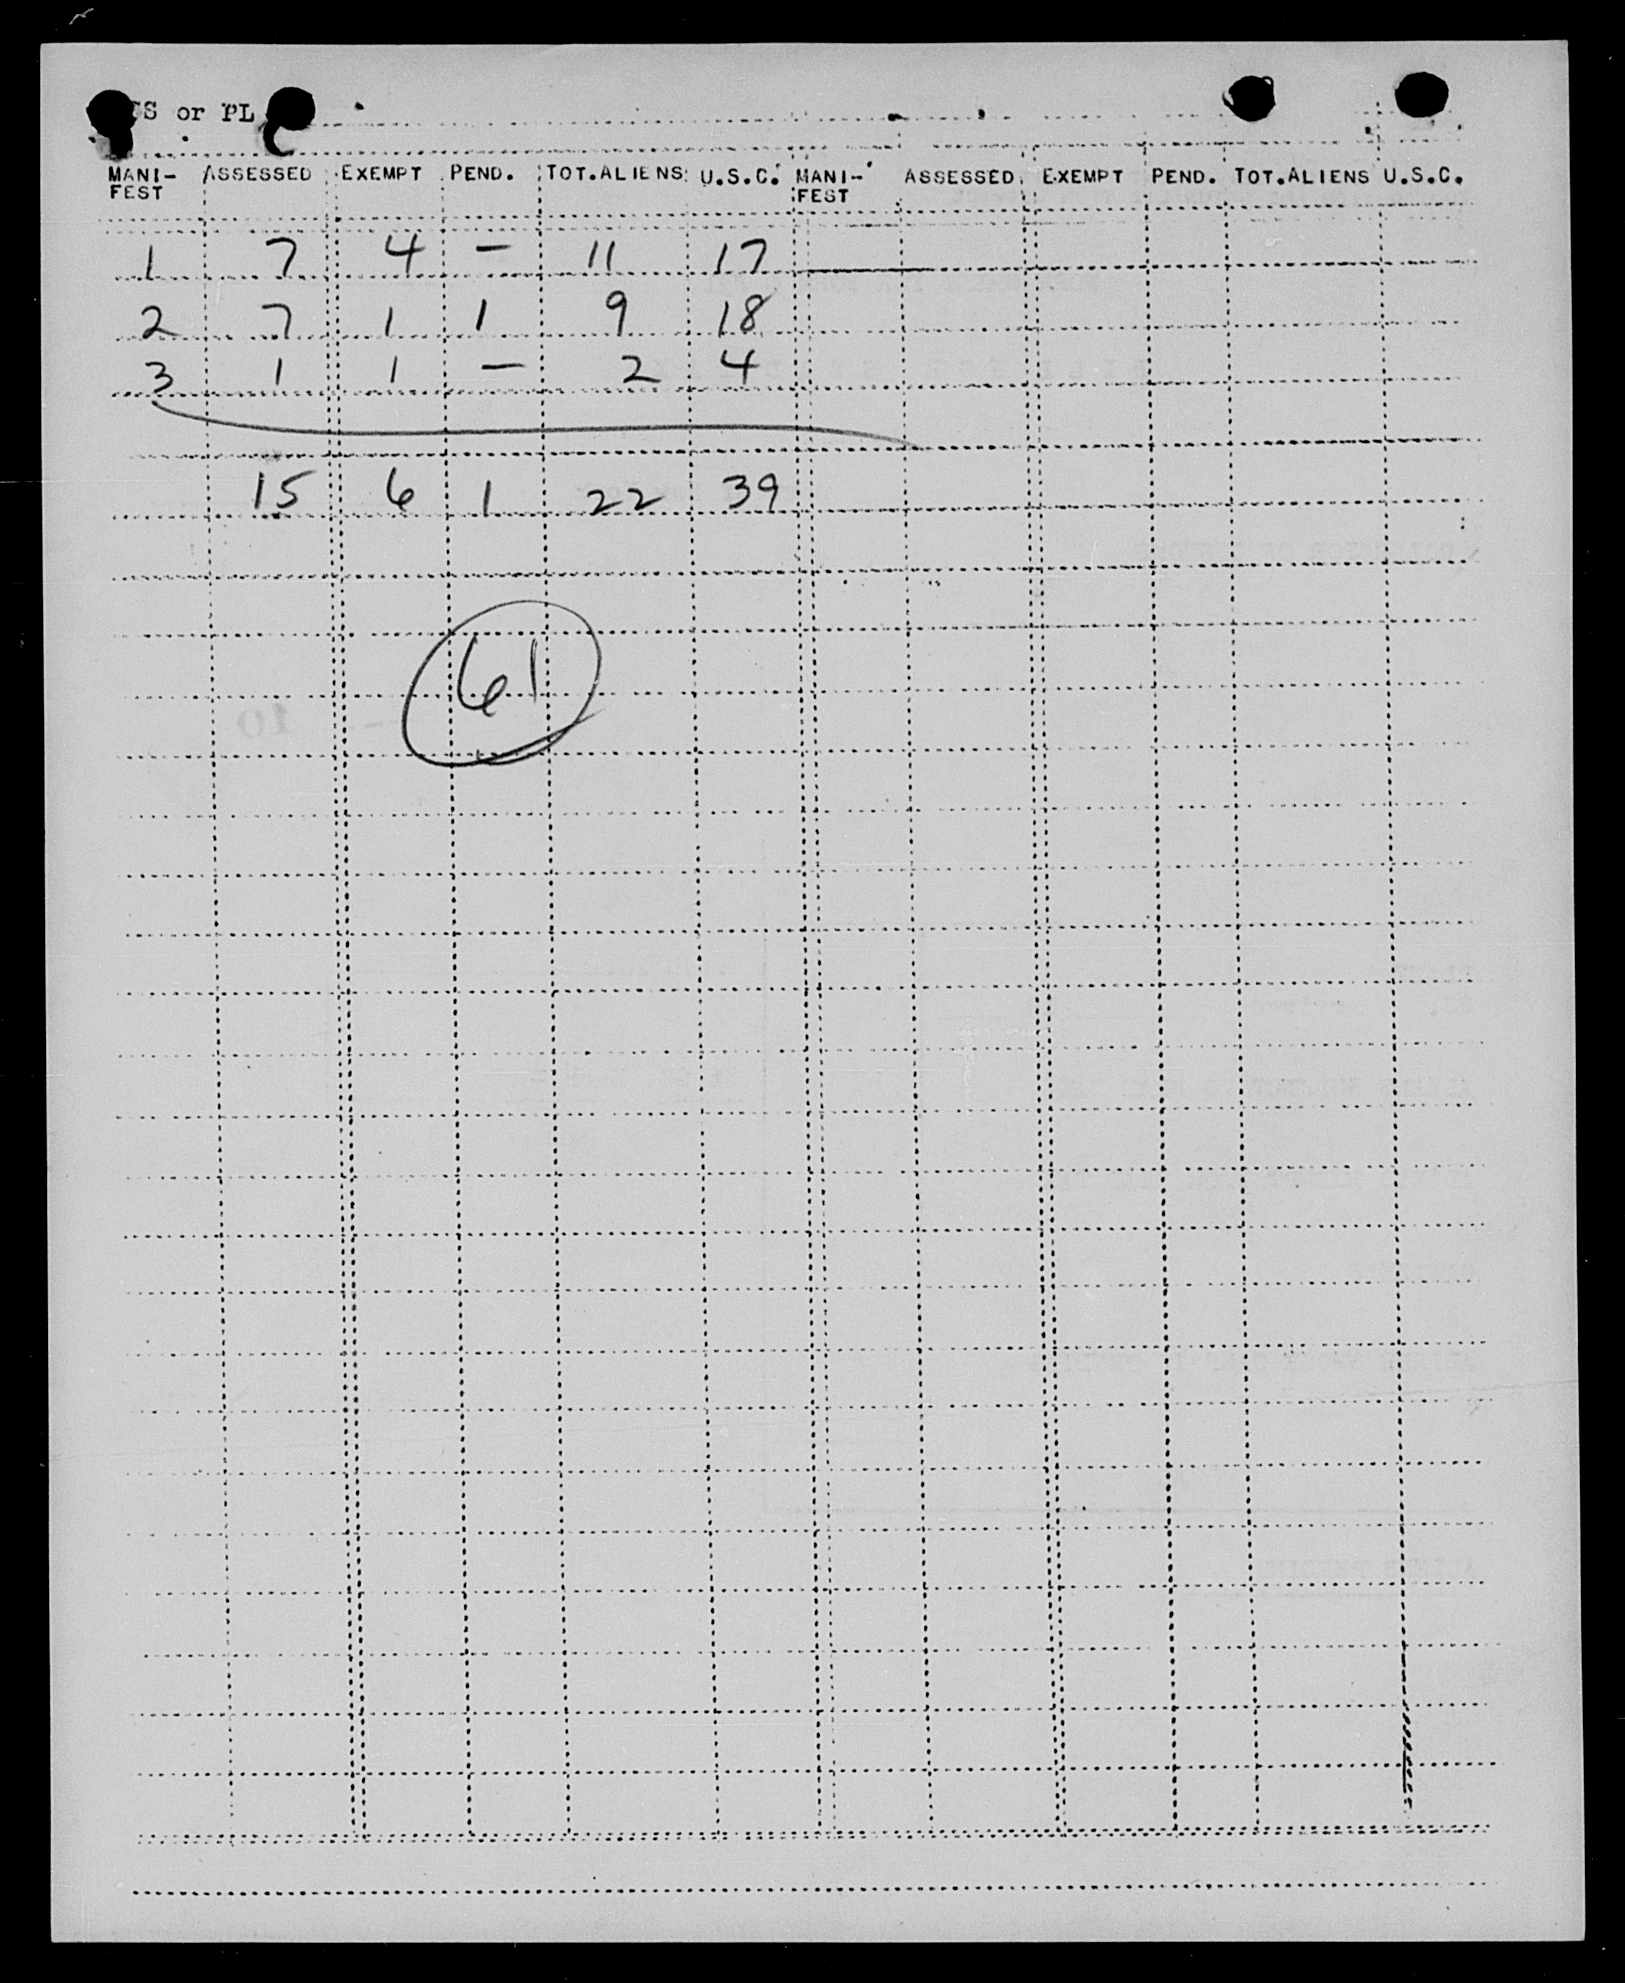 SS or PL
MANI-FEST ASSESSED EXEMPT PEND. TOT.ALIENS U.S.C. MANI-FEST ASSESSED EXEMPT PEND. TOT.ALIENS U.S.C.
1 7 4 — 11 17
2 7 1 1 9 18
3 1 1 — 2 4
15 6 1 22 39
61